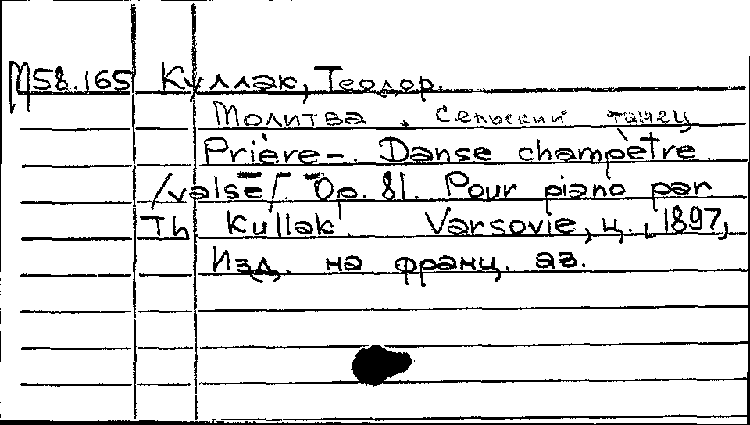 М58.165 Куллак, Теодор.
Молитва. Сельский танец
Prière-. Danse champètre
/valse/ Op. 81. Pour piano par
Th Kullak. Varsovie, ц., 1897,
Изд. на франц. яз.